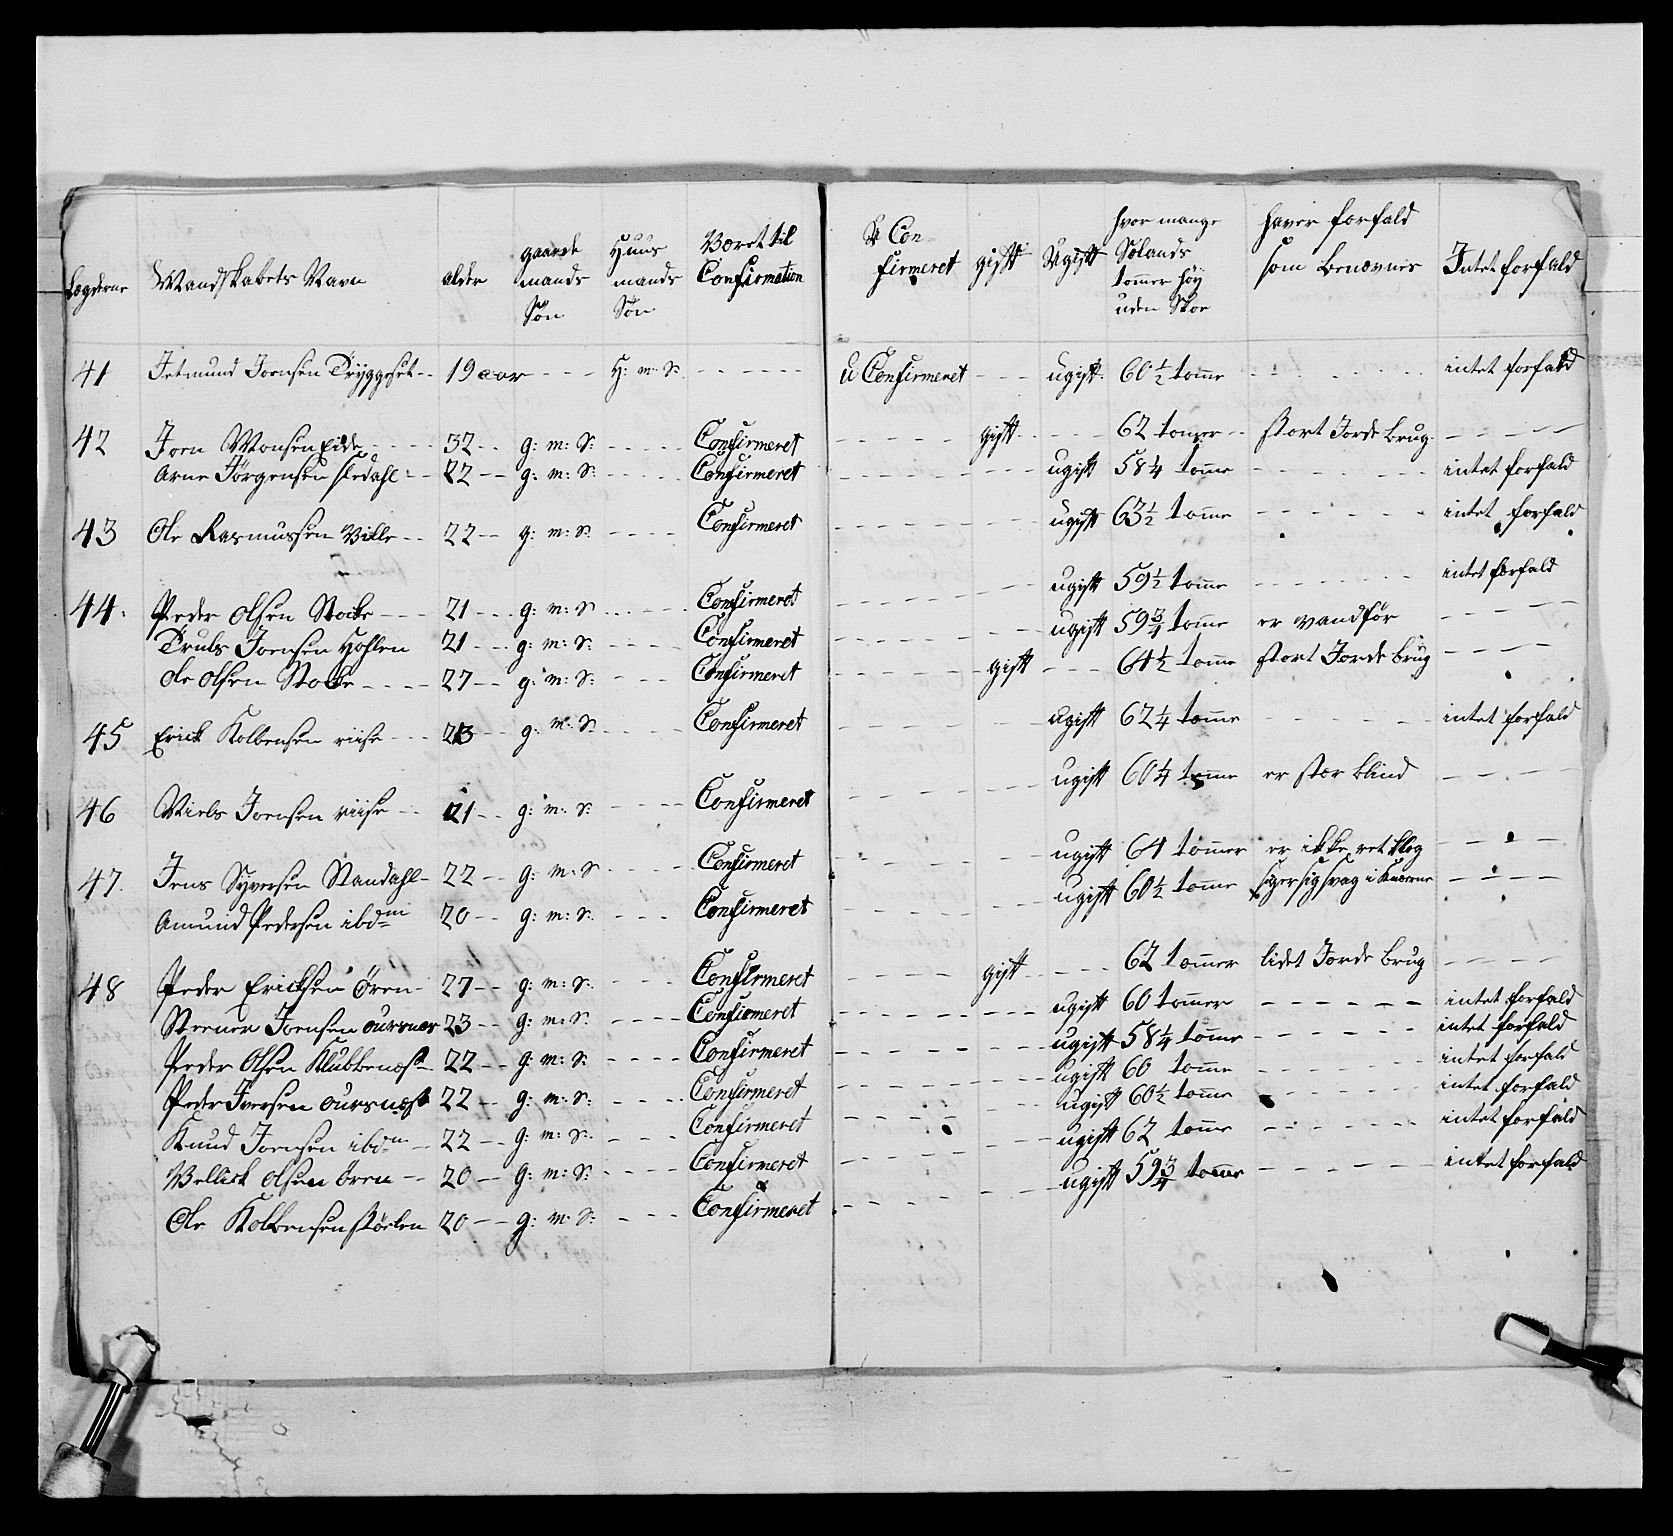 Lægderne Mandskabets Navn alder gaarde mands Søn Huus mands Søn Været til Confirmation U Con- firmeret gift Ugift hvor mange Sælands tommer høy uden Skoe haver forfald som benævnis Intet forfald
41 Jetmund Joensen Dryggeset -- 19 aar ---- H: m: S: ------ U Confirmeret --- ugift 60 1/2 tomme ------ intet forfald
42 Joen Monsen Eide ---- 32 -- g: m: S: ----- Confirmeret ----- gift ---- 62 tomer -- stort Jorde brug -----
Arne Jørgensen -- 22 -- g: m: S: ----- Confirmeret ----- --- ugift 58 1/4 tomme ------ intet forfald
43 Ole Rasmussen Ville -- 22 -- g: m: S: ---- Confirmeret -------- ugift 63 1/2 tomme ------ intet forfald
44. Peder Olsen Stocke --- 21 --- g: m: S: ----- Confirmeret -------- ugift 59 1/2 tomme ------ intet forfald
Truls Joensen Hohlen 21 --- g: m: S: ---- Confirmeret -------- ugift 59 3/4 tomme er vandför -----
Ole Olsen Stocke ---- 27 -- g: m: S: ---- Confirmeret ----- gift --- 64 1/2 tomme stort Jorde brug ----
45 Erick Kolbensen riise --- 23 -- g: m: S: ---- Confirmeret ------- ugift 62 1/4 tomme ------ intet forfald
46 Niels Joensen riise -- 21 -- g: m: S: ---- Confirmeret ------- ugift 60 1/4 tomme er stær blind ----
47. Jens Syversen Standahl - 22 -- g: m: S: ---- Confirmeret ------- ugift 64 tommer er ikke ret klog ----
Amund Pedersen ibdm 20 -- g: m: S: --- Confirmeret ------- ugift 60 1/2 tomme siger sig svag i Knæerne ----
48 Peder Ericksen Ören - 27 -- g: m: S: --- Confirmeret ---- gift --- 62 tommer lidet Jorde brug ----
Steener Joensen oursnes 23 -- g: m: S: ---- Confirmeret ------- ugift 60 tommer ------ intet forfald
Peder Olsen Klubbenæs - 22 -- g: m: S: ---- Confirmeret ------- ugift 58 1/4 tomme ------ intet forfald
Peder Iversen oursnæs 22 -- g: m: S: ---- Confirmeret ------- ugift 60 tomme ------ intet forfald
Knud Joensen ibdm -- 22 -- g: m: S: --- Confirmeret ------- ugift 60 1/2 tomme ------ intet forfald
Olsen ören -- 20 -- g: m: S: ---- Confirmeret ------- ugift 62 tomme ------ intet forfald
Ole Kolbensen 20 -- g: m: S: --- Confirmeret ------- ugift 59 3/4 tomme ------ intet forfald